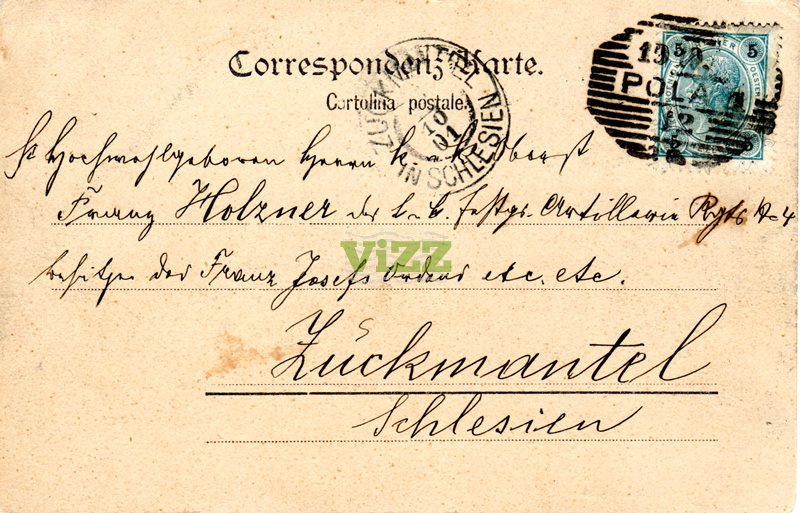 Correspondenz-Karte.
Cartolina postale.
ZUCKMANTEL IN SCHLESIEN
10
01
5 5
POLA 1
Sr Hochwohlgeboren Herrn k. u. k. Oberst
Franz Holzner des k. u. k. Festgs. Artillerie Rgts No 4
ViZZ
besitzer des Franz Josefs Ordens etc. etc.
Zuckmantel
Schlesien